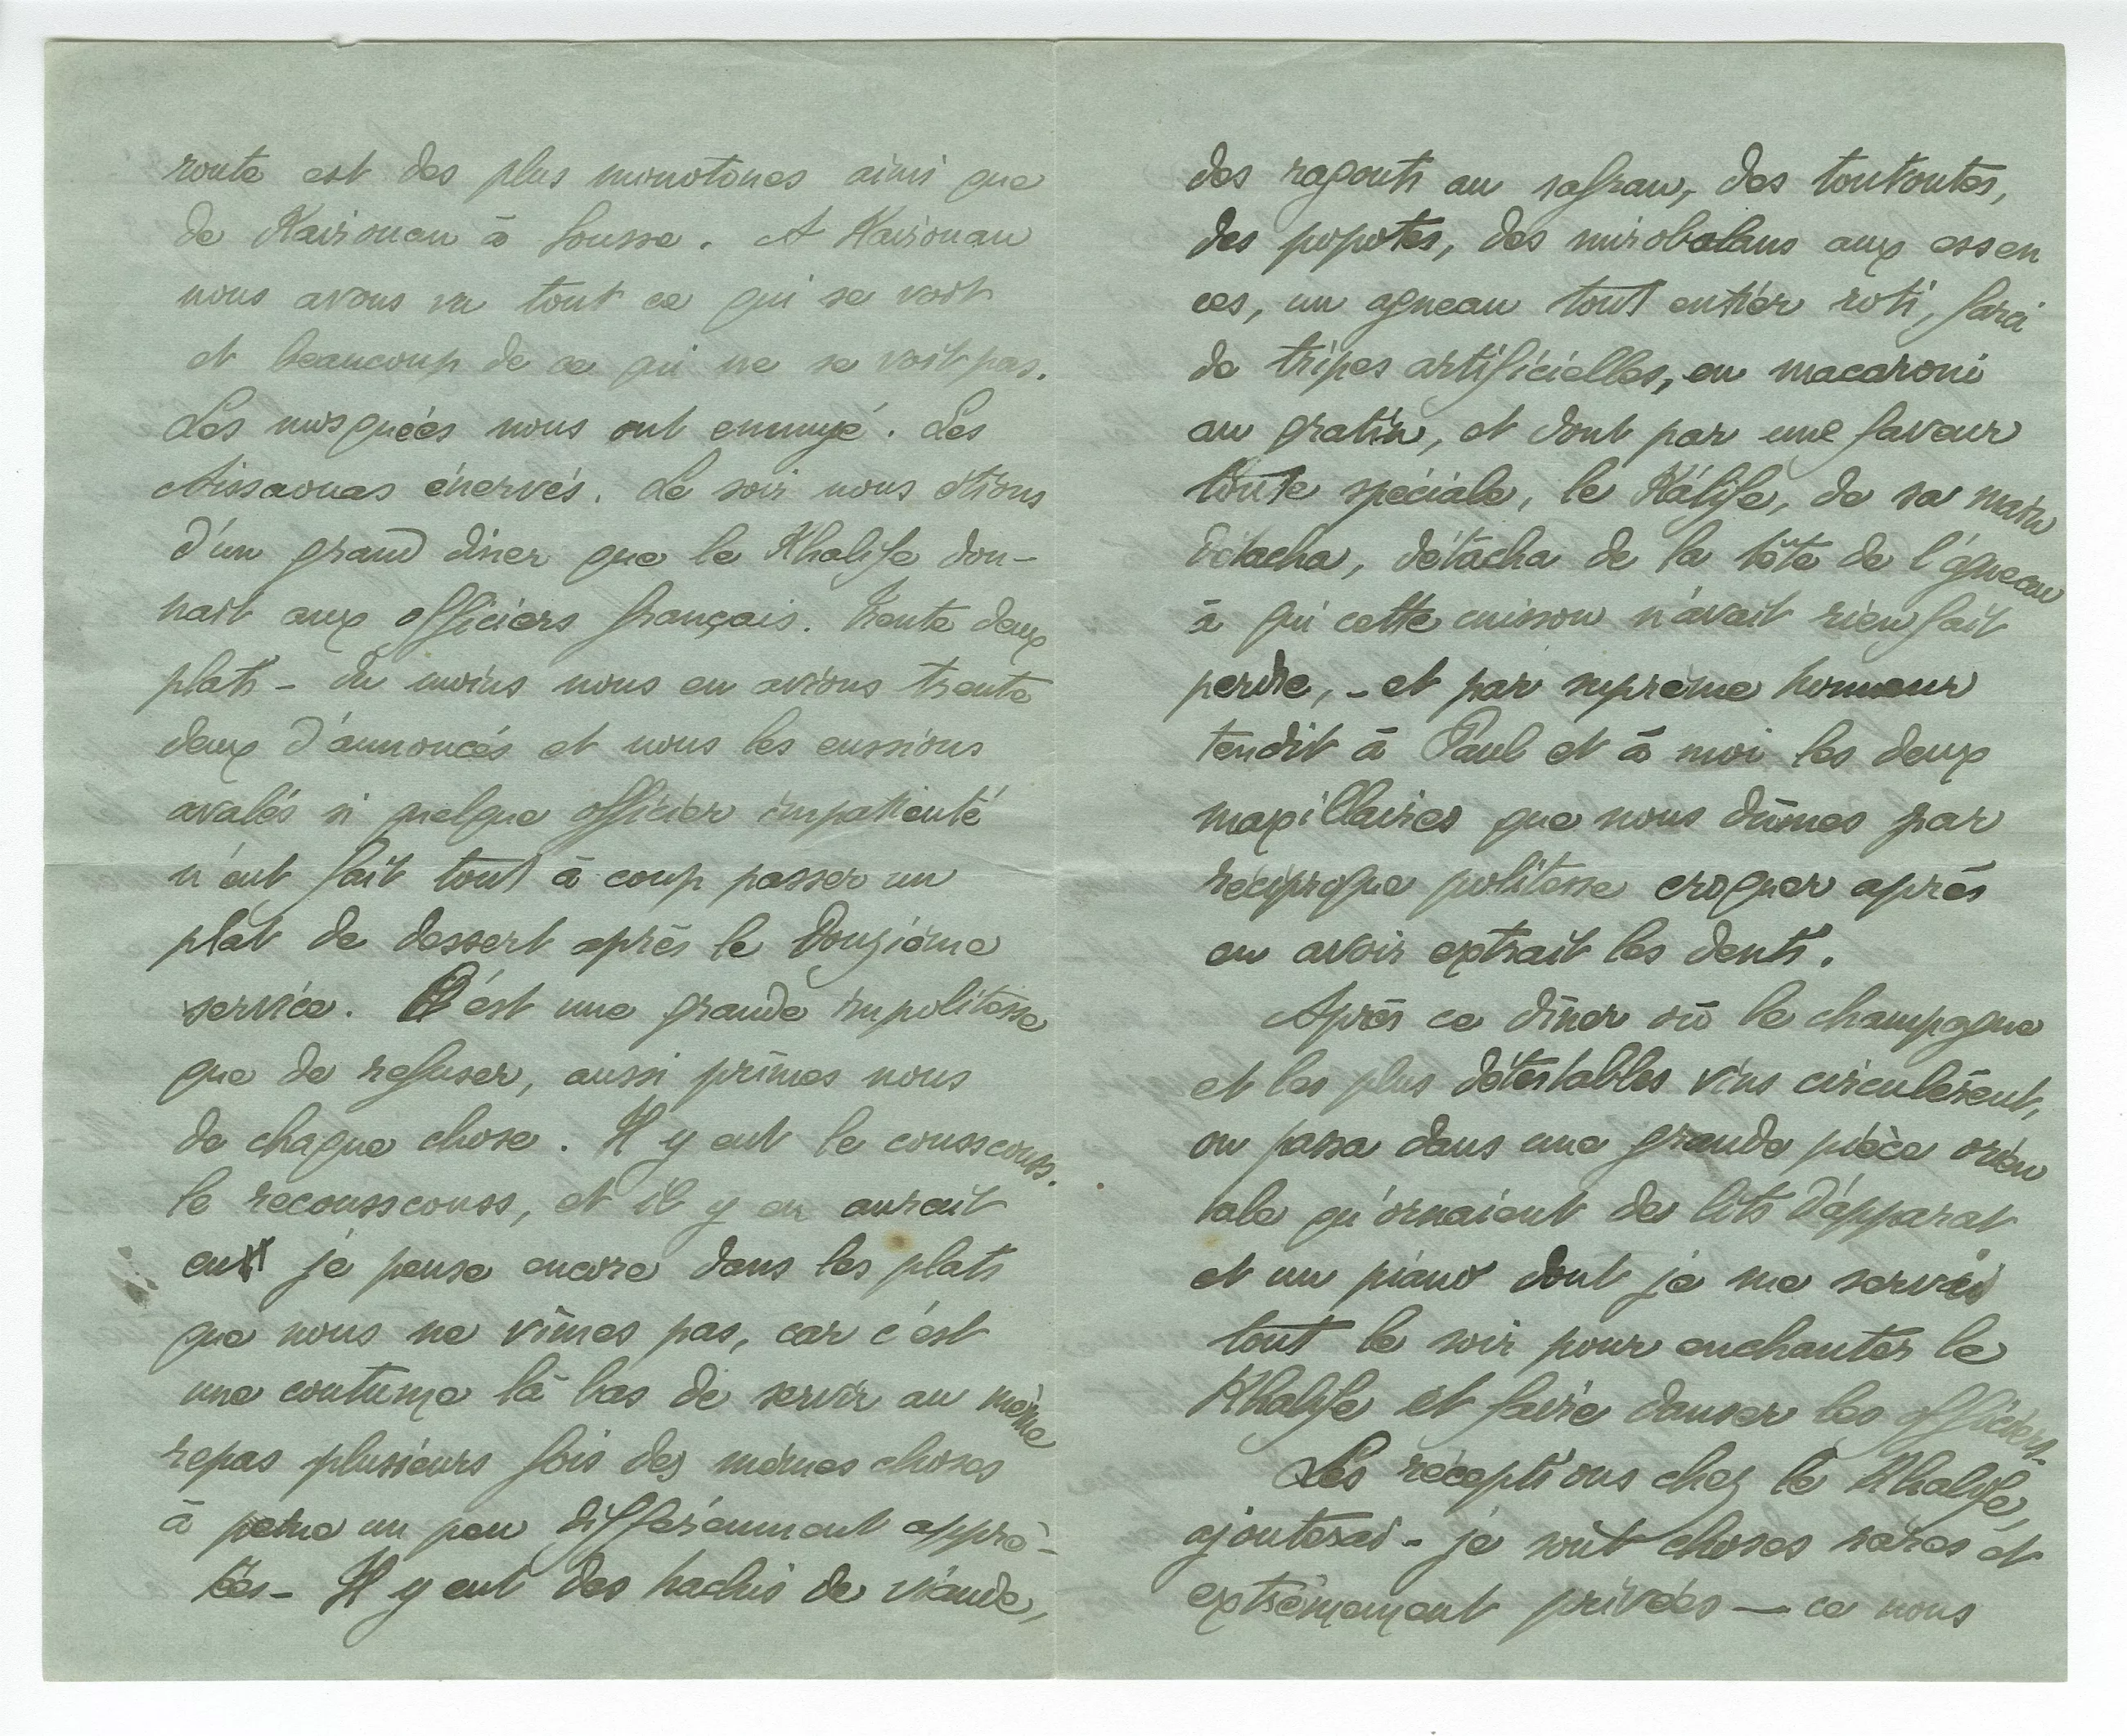 route est des plus monotones ainsi que
de Kairouan à Sousse. A Kairouan
nous avons vu tout ce qui se voit
et beaucoup de ce qui ne se voit pas.
Les mosquées nous ont ennuyé. Les
Aissaouas énervés. Le soir nous étions
d'un grand diner que le Khalife don-
nait aux officiers français. Trente deux
plats - du moins nous en avions trente
deux d'annoncés et nous les eussions
avalés si quelque officier impatienté
n'eut fait tout à coup passer un
plat de dessert après le douzième
service. C'est une grande impolitesse
que de refuser, aussi prîmes nous
de chaque chose. Il y eut le cousscouss.
le recousscouss, et il y en aurait
eu je pense encore dans les plats
que nous ne vîmes pas, car c'est
une coutume là bas de servir au même
repas plusieurs fois des mêmes choses
à peine un peu différemment apprê-
tées - Il y eut des hachis de viande,
des ragouts au safran, des toutoutes,
des popotes, des mirobolans aux essen
ces, un agneau tout entier roti, farci
de tripes artificielles, en macaroni
au gratin, et dont par une faveur
toute spéciale, le Kalife, de sa main
détacha, détacha de la tête de l'agneau
à qui cette cuisson n'avait rien fait
perdre, - et par suprême honneur
tendit à Paul et à moi les deux
maxillaires que nous dûmes par
réciproque politesse croquer après
en avoir extrait les dents.
Après ce dîner où le champagne
et les plus détestables vins circulèrent,
on passa dans une grande pièce orien
tale qu'ornaient des lits d'apparat
et un piano dont je me servis
tout le soir pour enchanter le
Khalife et faire danser les officiers.
Les réceptions chez le Khalife,
ajouterai-je sont choses rares et
extrêmement privées — ce nous